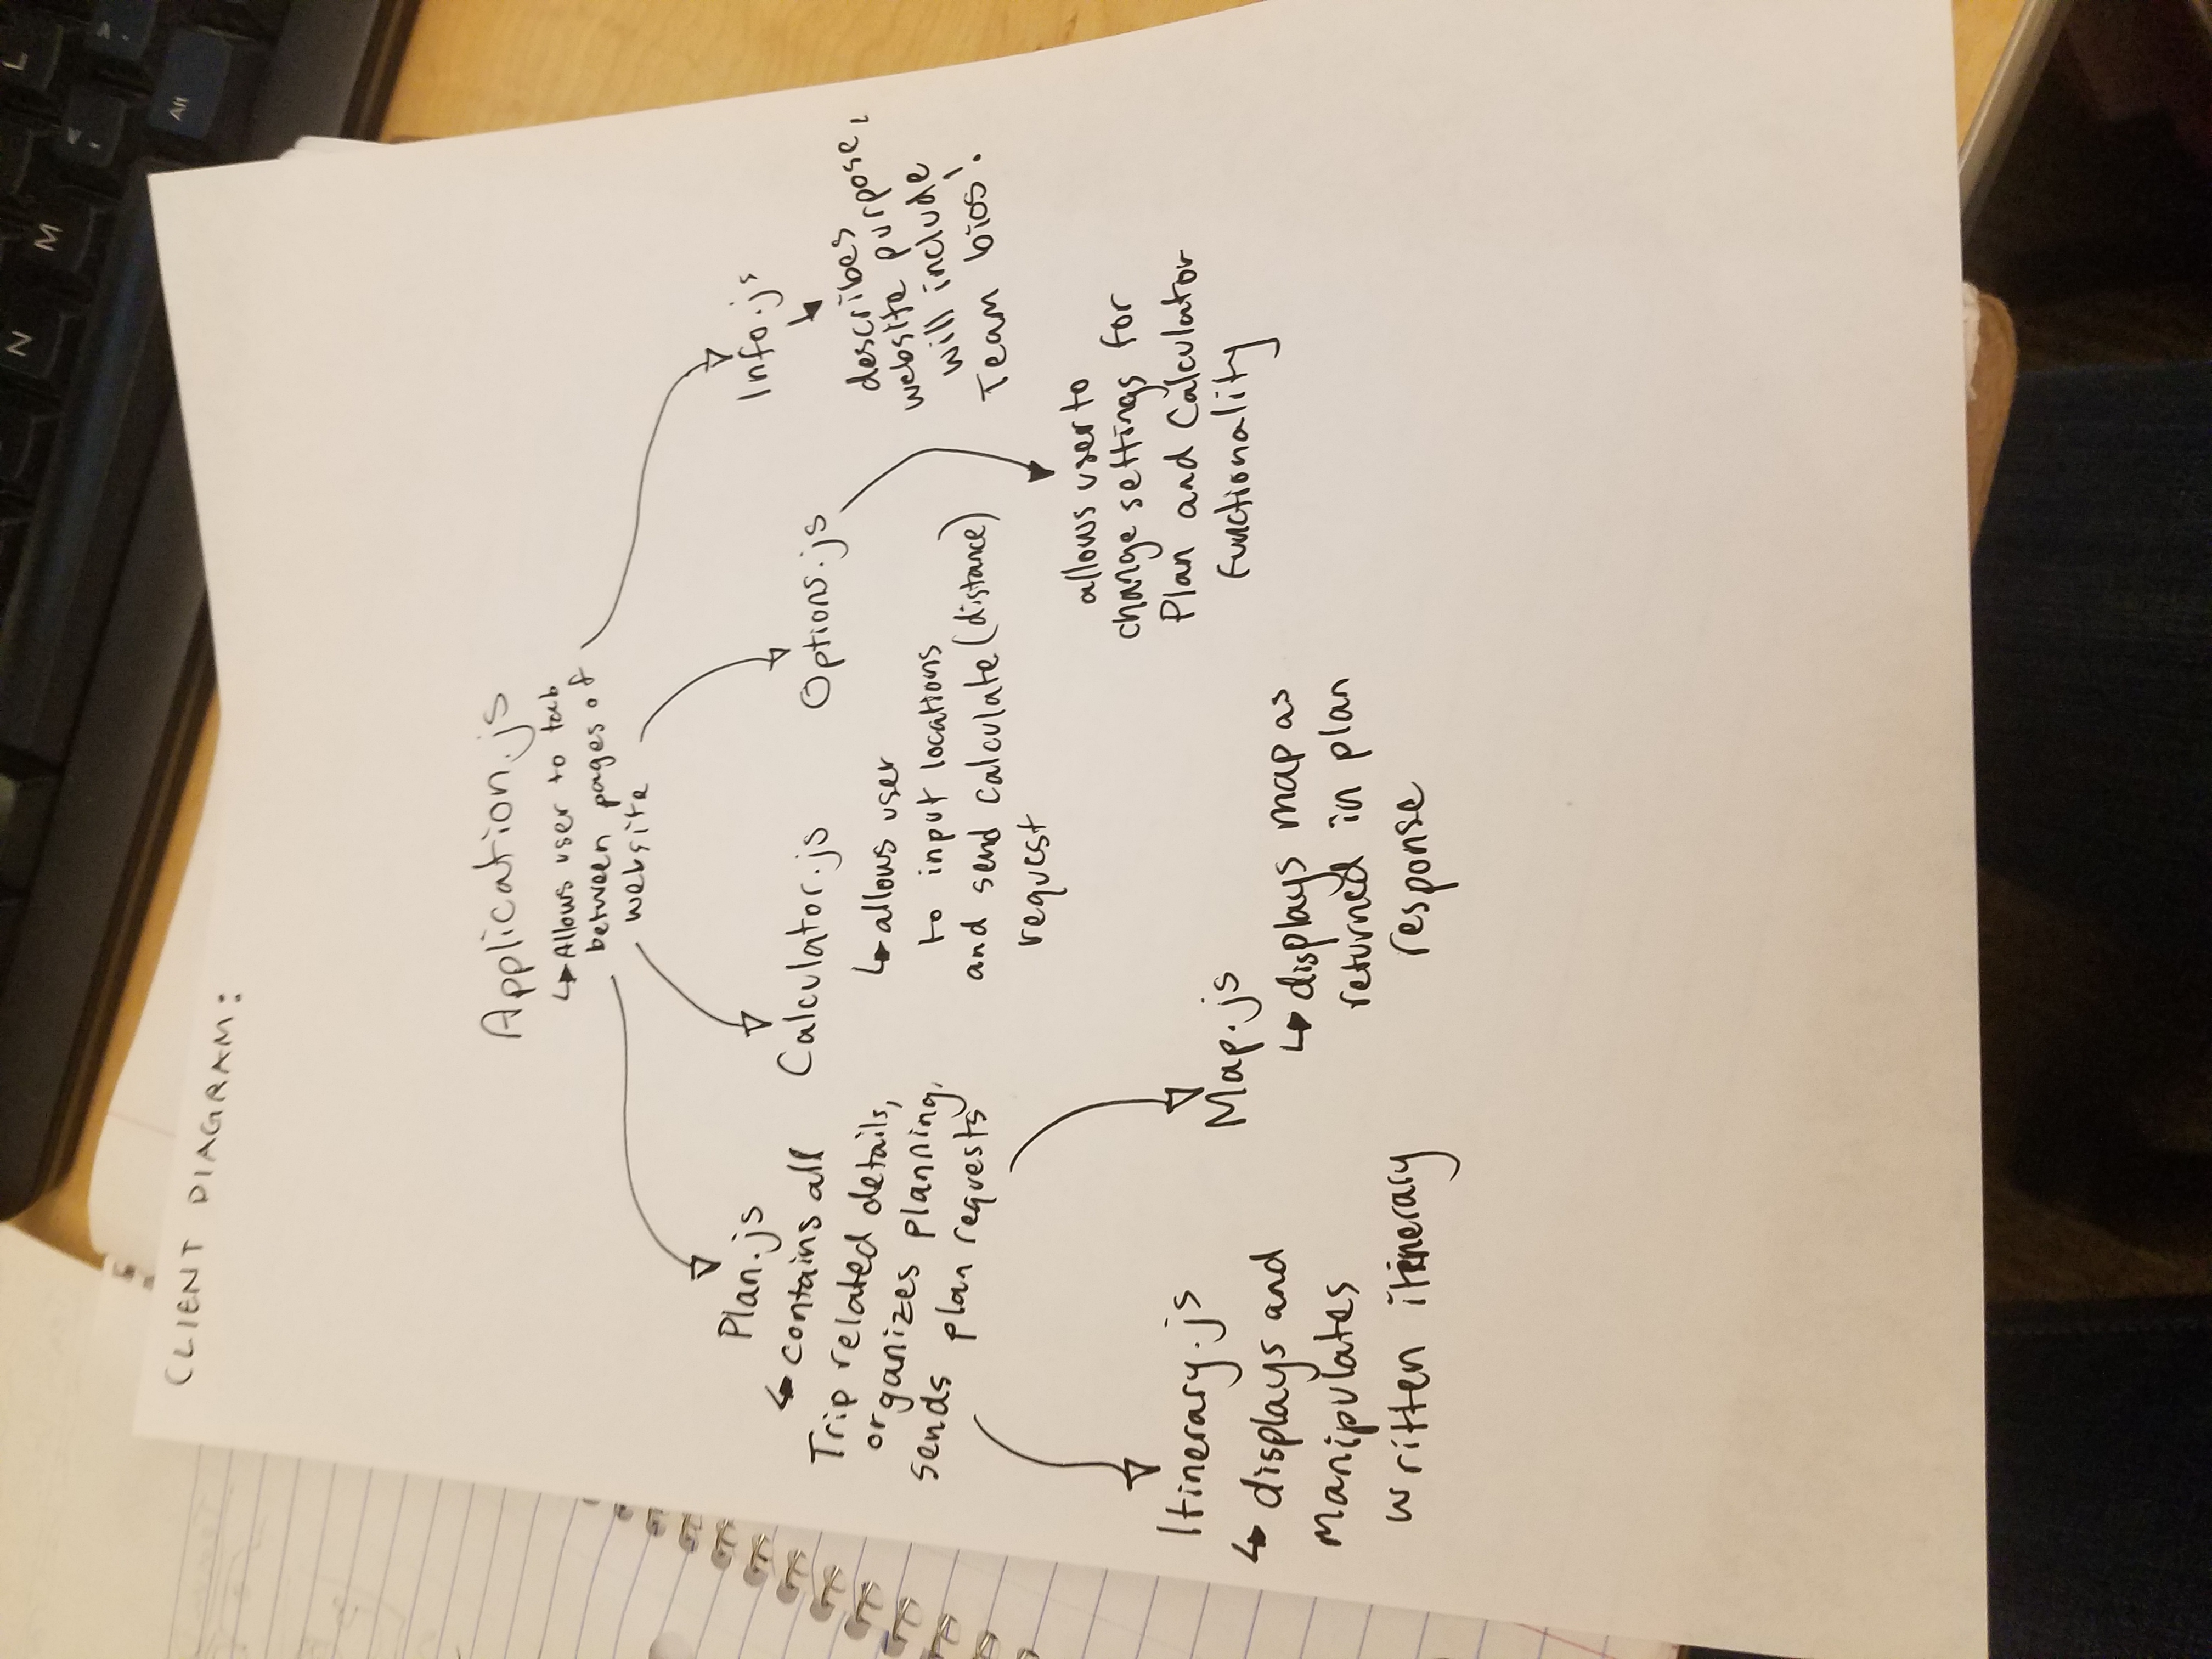 N
M
L
Alt
CLIENT DIAGRAM:
Application.js
↳ Allows user to tab
between pages of
website
Plan.js
↳ contains all
Trip related details,
organizes planning,
sends plan requests
Calculator.js
↳ allows user
to input locations
and send calculate (distance)
request
Options.js
allows user to
change settings for
Plan and Calculator
functionality
Info.js
describes
website purpose,
will include
Team bios!
Itinerary.js
↳ displays and
Manipulates
written itinerary
Map.js
↳ displays map as
returned in plan
response